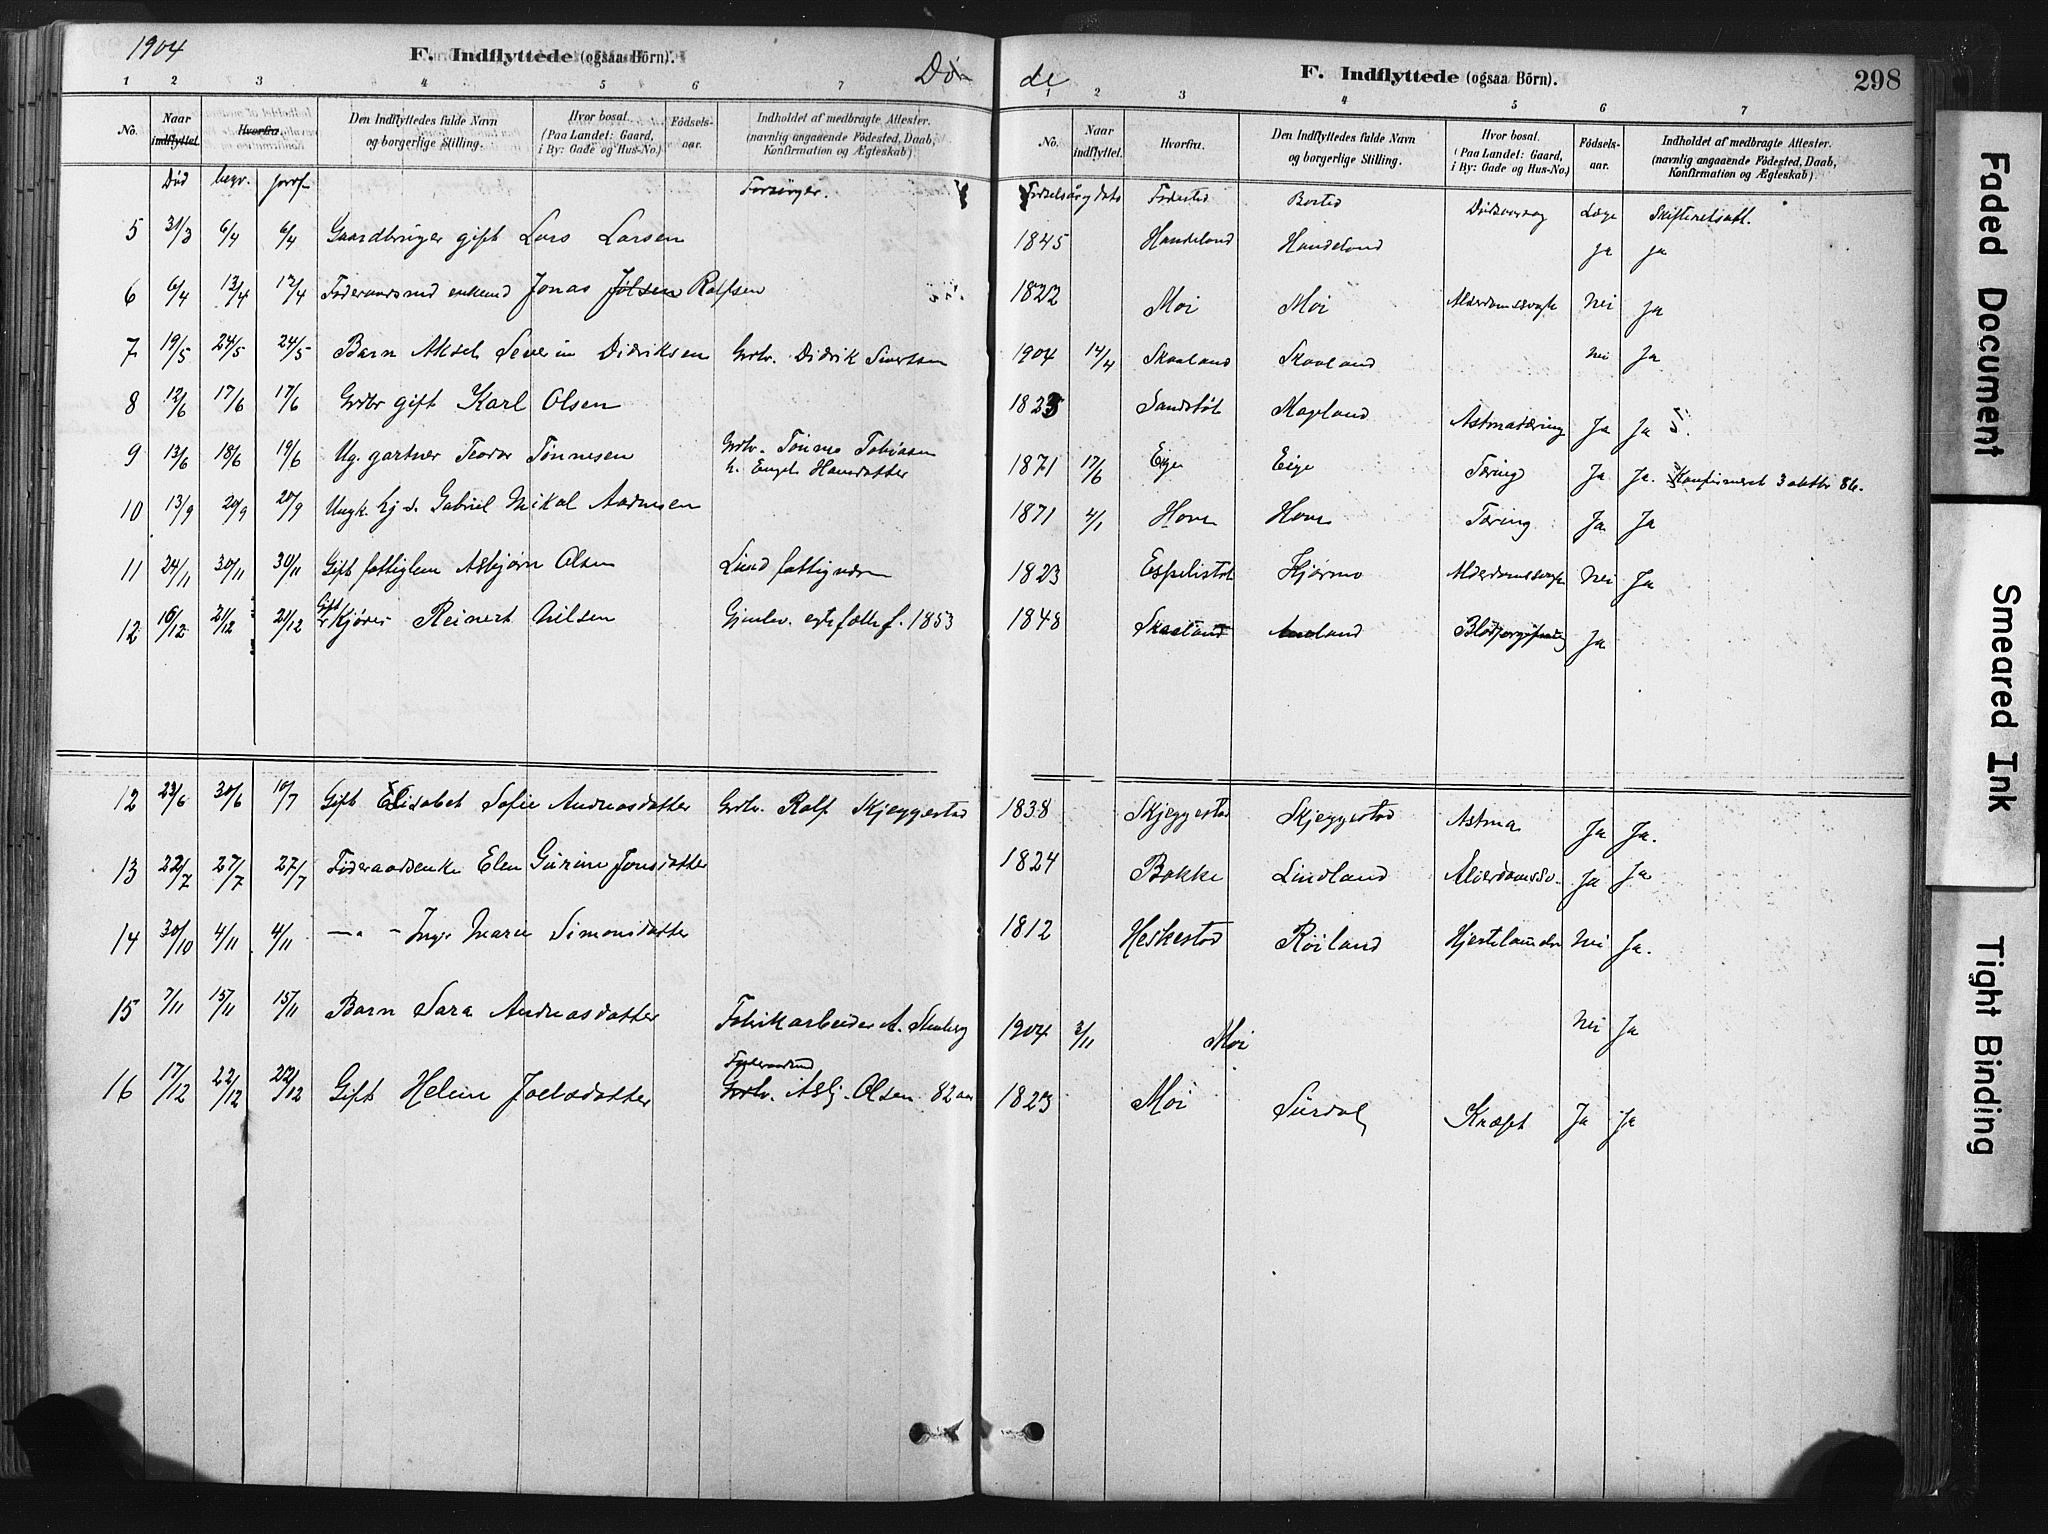 1904
F. Indflyttede (ogsaa Börn).
Dö-
1 2 3 4 5 6 7
No. Naar indflyttet. Hvorfra. Den Indflyttedes fulde Navn og borgerlige Stilling. Hvor bosat. (Paa Landet: Gaard, i By: Gade og Hus-No.) Födsels-aar. Indholdet af medbragte Attester. (navnlig angaaende Födested, Daab, Konfirmation og Ægteskab).
Död begr. jordf. Forsörger.
5 31/3 6/4 6/4 Gaardbruger gift Lars Larsen
6 6/4 12/4 12/4 Föderaadsmd enkemd Jonas Jölsen Rolfsen
7 19/5 24/5 24/5 Barn Aksel Severin Didriksen Grdbr. Didrik Sivertsen
8 12/6 17/6 17/6 Grdbr gift Karl Olsen
9 13/6 18/6 19/6 Ug. gartner Teodor Tönnesen Grdbr. Tönnes Tobiasen
h. Engel Hansdatter
10 13/9 20/9 20/9 Ungk. hj. s. Gabriel Mikal Aadnesen
11 24/11 30/11 30/11 Gift fattiglem Asbjörn Olsen Lund fattigvæsen
12 16/12 21/12 21/12 Gift Reinert Nilsen f. 1853
12 23/6 30/6 10/7 Gift Elisabet Sofie Andreasdatter Grdbr. Rolf Skjeggestad
13 22/7 27/7 27/7 Föderaadsenke Elen Gurine Jonsdatter
14 30/10 4/11 4/11 —„— Inger Marie Simonsdatter
15 7/11 15/11 15/11 Barn Sara Andreasdatter Fabrikarbeider A. Stenberg
16 17/12 22/12 22/12 Gift Helene Joelsdatter Föderaadsmd Grdbr. Asbj. Olsen 82 aar
de
F. Indflyttede (ogsaa Börn).
298
1 2 3 4 5 6 7
No. Naar indflyttet. Hvorfra. Den Indflyttedes fulde Navn og borgerlige Stilling. Hvor bosat. (Paa Landet: Gaard, i By: Gade og Hus-No.) Födsels-aar. Indholdet af medbragte Attester. (navnlig angaaende Födested, Daab, Konfirmation og Ægteskab).
Födselsår og dato Födested Bosted Dödsaarsag Læge Skifteretsatt.
1845 Handeland Handeland ja ja
1822 Moi Moi Alderdomssvagh. Nei Ja
1904 14/4 Skaaland Skaaland Nei Ja
1823 Sandstöl Mageland Astma tæring Ja Ja
1871 17/6 Eige Eige Tæring Ja Ja. Konfirmeret 3 oktbr 86.
1871 4/1 Hove Hove Tæring Ja Ja
1823 Espelistöl Kjörmo Alderdomssvagh Nei Ja
1848 Skaaland Blodforgiftning Ja
1838 Skjeggestad Skjeggestad Astma Ja Ja.
1824 Bakke Lindland Alderdomssv. Ja Ja
1812 Heskestad Röiland Hjertelammelse Nei Ja.
1904 3/11 Moi Nei Ja
1823 Moi Surdal Kræft Ja Ja
Faded Document
Smeared Ink
Tight Binding